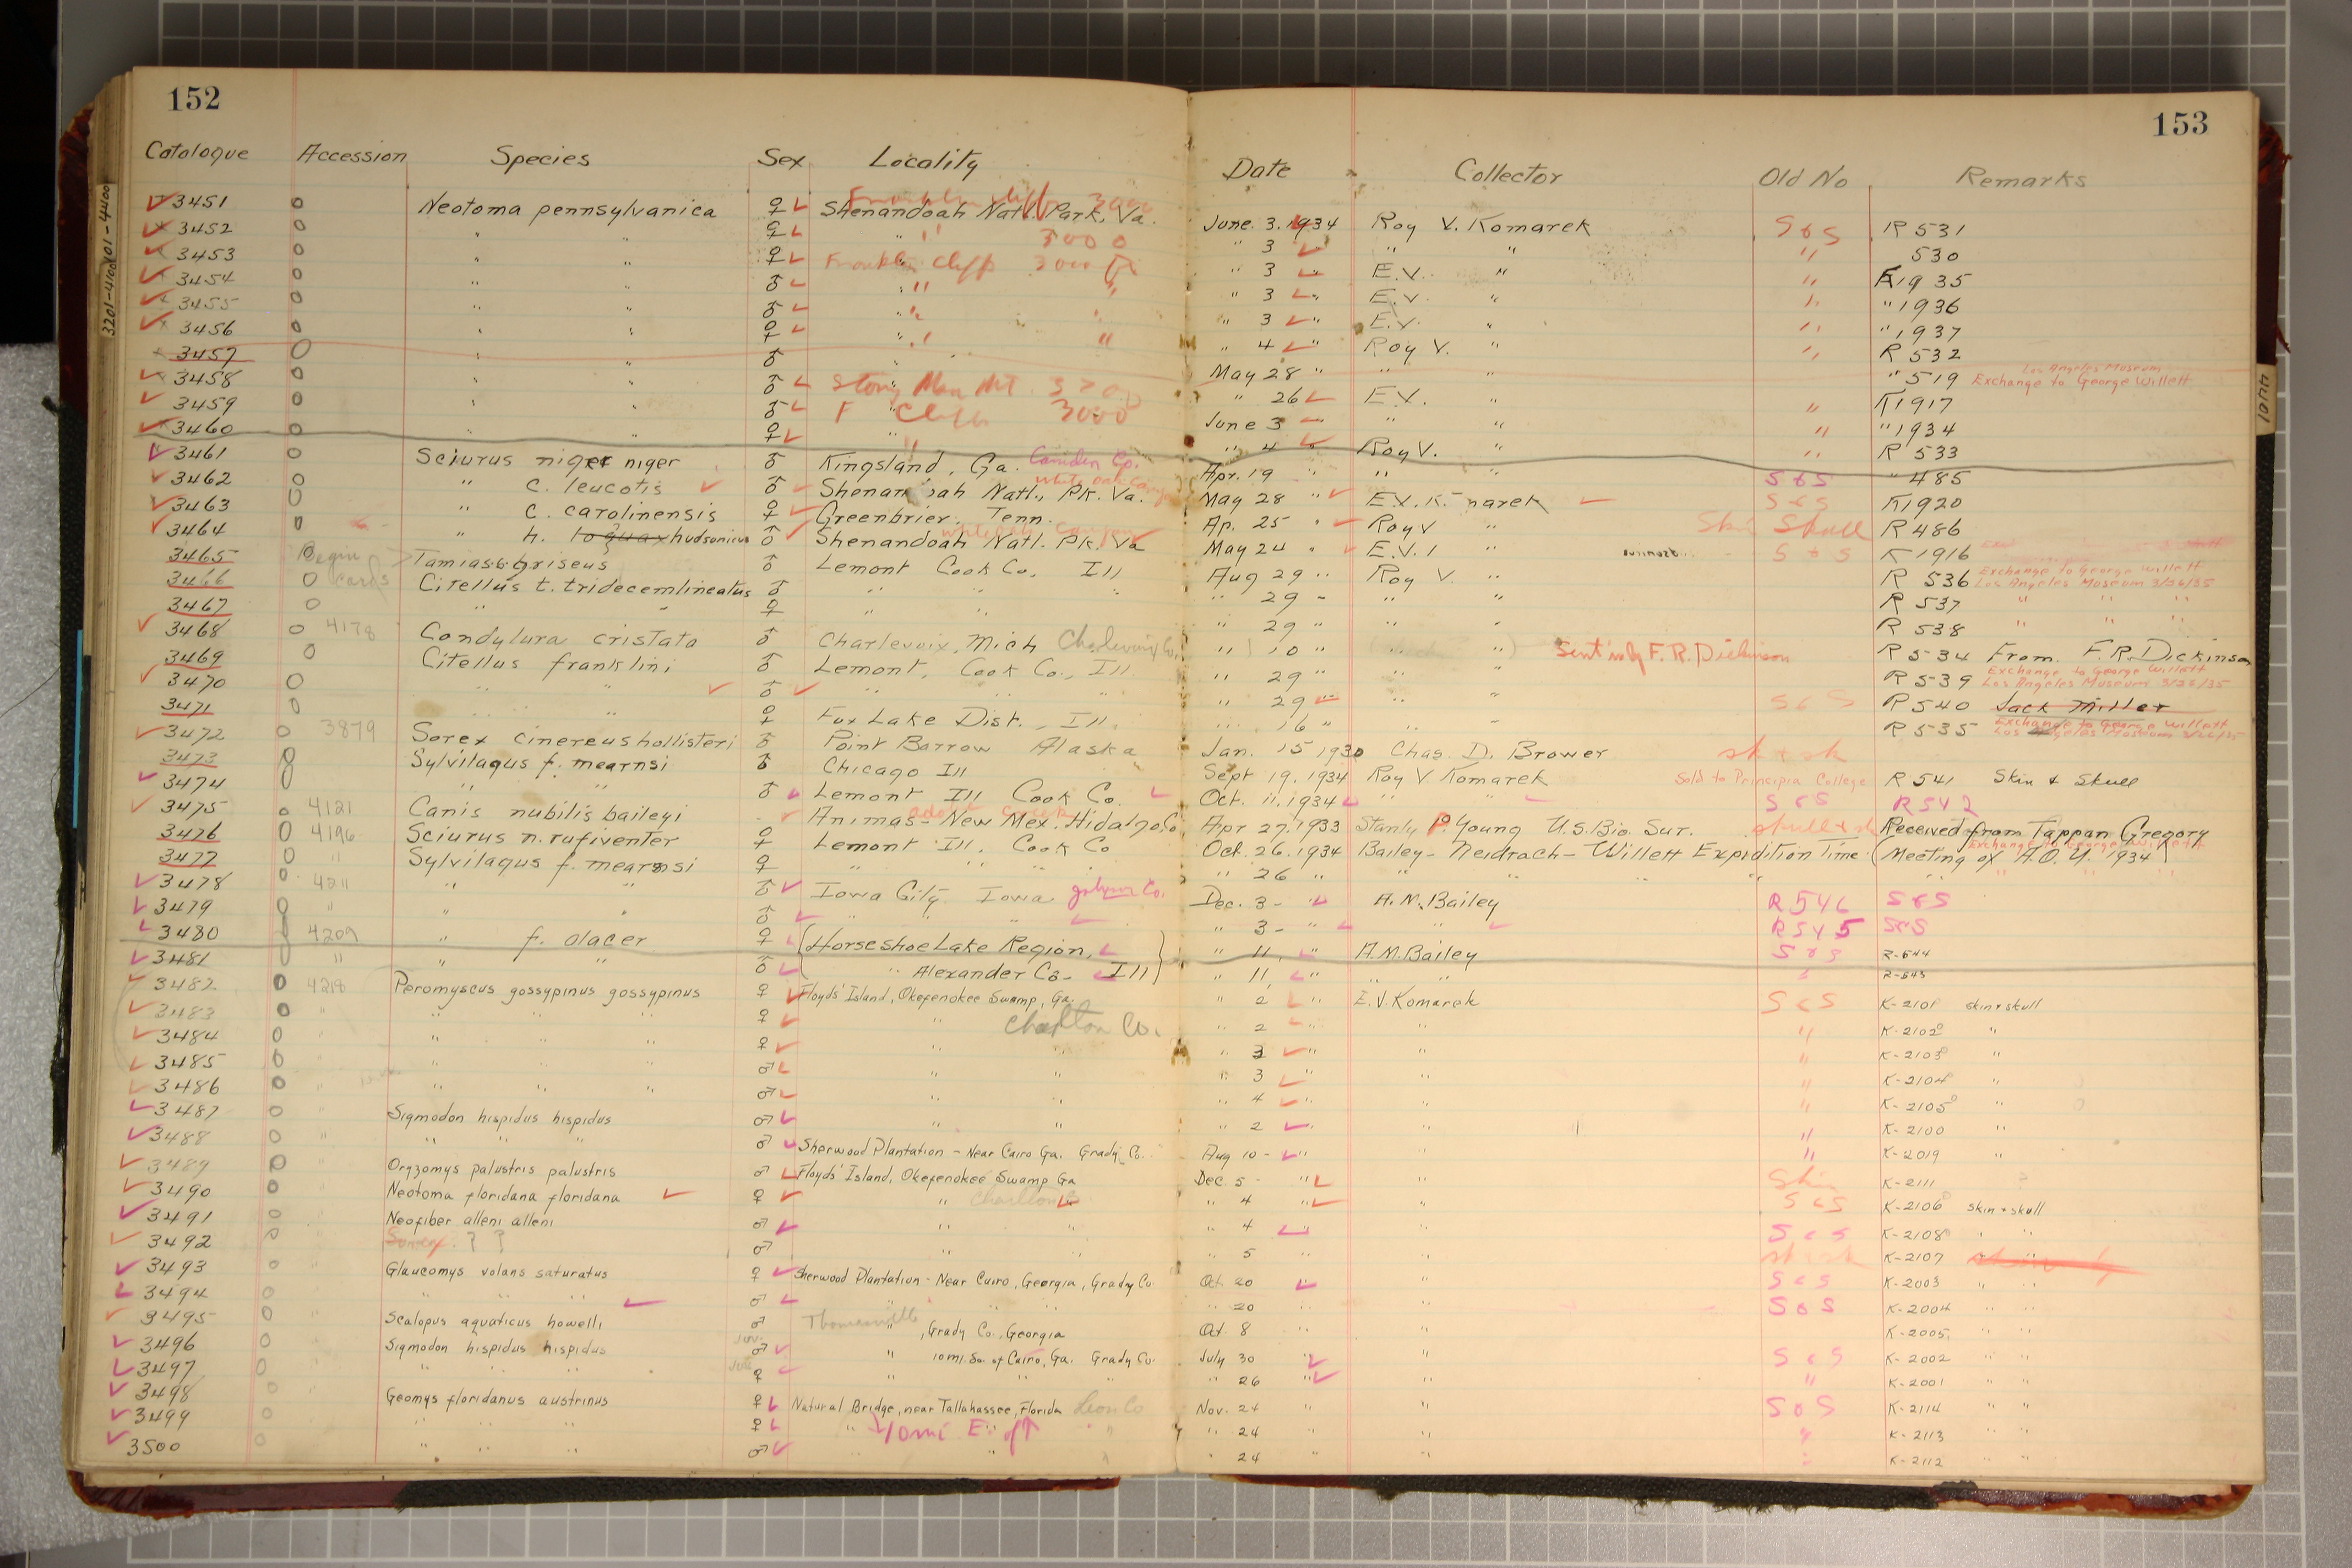 152
153
Catalogue Accession Species Sex Locality Date Collector Old No Remarks
3451 0 Neotoma pennsylvanica ♀ Shenandoah Natl. Park, Va. June. 3. 1934 Roy V. Komarek S&S R 531
3452 0 " " ♀ " 3000 " 3 " " " " 530
3453 0 " " ♀ Franklin Cliffs 3000 ft " 3 " E.V. " " K1935
3454 0 " " ♂ " " " 3 " E.V. " " " 1936
3455 0 " " ♂ " " " 3 " E.V. " " " 1937
3456 0 " " ♀ " " " 4 " Roy V. " " R 532
3457 0 " " ♂ " May 28 " " " " 519 Exchange to George Willett Los Angeles Museum
3458 0 " " ♂ Stony Man Mt. " 26 E.V. " K1917
3459 0 " " ♂ F Cliffs 3000 June 3 " " " " 1934
3460 0 " " ♀ " " 4 " Roy V. " " R 533
3461 0 Sciurus niger niger ♂ Kingsland, Ga. Camden Co. Apr. 19 " " " S&S " 485
3462 0 " c. leucotis ♂ Shenandoah Natl., Pk. Va. White Oak Canyon May 28 " E.V. Komarek S&S K1920
3463 0 " c. carolinensis ♀ Greenbrier, Tenn. Ap. 25 " Roy V " Skin Skull R 486
3464 0 " h. loquax hudsonicus ♂ Shenandoah Natl. Pk. Va White Oak Canyon May 24 " E.V. " S&S K 1916
3465 0 Begin cards Tamias s. griseus ♂ Lemont Cook Co. Ill Aug 29 " Roy V. " R 536 Exchange to George Willett Los Angeles Museum 3/26/35
3466 0 Citellus t. tridecemlineatus ♂ " " " " 29 " " " R 537 " " "
3467 0 " " ♀ " " " 29 " " " R 538 " " "
3468 0 4178 Condylura cristata ♂ Charlevoix, Mich Charlevoix Co. " 10 " " " Sent in by F. R. Dickinson R 534 From F.R. Dickinson
3469 0 Citellus franklini ♂ Lemont, Cook Co., Ill. " 29 " " " R 539 Exchange to George Willett Los Angeles Museum 3/26/35
3470 0 " " ♂ " " " " 29 " " S&S R 540 Jack Miller
3471 0 " " ♀ Fox Lake Dist., Ill. " 16 " " " R 535 Exchange to George Willett Los Angeles Museum 3/26/35
3472 0 3879 Sorex cinereus hollisteri ♂ Point Barrow Alaska Jan. 15 1930 Chas. D. Brower sk & sk
3473 0 Sylvilagus f. mearnsi ♂ Chicago Ill Sept 19. 1934 Roy V Komarek Sold to Principia College R 541 Skin & Skull
3474 0 " " ♂ Lemont Ill Cook Co. Oct. 11. 1934 " " S&S R542
3475 0 4121 Canis nubilis baileyi Animas - New Mex. Hidalgo Co. Apr 27. 1933 Stanly P. Young U.S. Bio. Sur. Received from Tappan Gregory
3476 0 4196 Sciurus n. rufiventer ♀ Lemont Ill. Cook Co Oct. 26. 1934 Bailey - Neidrach - Willett Expidition Time (Meeting of A.O.U. 1934) Exchange to George Willett
3477 0 " Sylvilagus f. mearnsi ♀ " " " " 26 " " " " "
3478 0 4211 " " ♂ Iowa City Iowa Johnson Co. Dec. 3 - " A. M. Bailey R546 S&S
3479 0 " " " ♂ " " " " 3 - " " R545 S&S
3480 0 4209 " f. alacer ♀ {Horseshoe Lake Region, " 11, " A. M. Bailey S&S R-544
3481 0 " " " ♂ " Alexander Co. Ill} " 11, " " " " R-543
3482 0 4218 Peromyscus gossypinus gossypinus ♀ Floyds' Island, Okefenokee Swamp, Ga. " 2 " E.V. Komarek S&S K-2101 skin & skull
3483 0 " " " " ♀ " Charlton Co. " 2 " " K-2102 "
3484 0 " " " " ♀ " " " 3 " " " K-2103 "
3485 0 " " " " ♂ " " " 3 " " " K-2104 "
3486 0 " " " " ♂ " " " 4 " " " K-2105 "
3487 0 " Sigmodon hispidus hispidus ♂ " " " 2 " " K-2100 "
3488 0 " " " " ♂ Sherwood Plantation - Near Cairo Ga. Grady Co. Aug 10 - " " " K-2019 "
3489 0 " Oryzomys palustris palustris ♂ Floyds' Island, Okefenokee Swamp Ga Dec. 5 - " " Skin K-2111
3490 0 " Neotoma floridana floridana ♀ " Charlton Co " 4 " " S&S K-2106 skin & skull
3491 0 Neofiber alleni alleni ♂ " " " 4 " " S&S K-2108 " "
3492 0 Sorex ? ? ♂ " " " 5 " " K-2107
3493 0 " Glaucomys volans saturatus ♀ Sherwood Plantation - Near Cairo, Georgia, Grady Co. Oct. 20 " S&S K-2003 " "
3494 0 " " " " ♂ " " " " 20 " " S&S K-2004 " "
3495 0 " Scalopus aquaticus howelli ♂ Thomasville " , Grady Co., Georgia Oct. 8 " " K-2005 " "
3496 0 " Sigmodon hispidus hispidus Juv. ♂ " 10 mi. So. of Cairo, Ga. Grady Co. July 30 " " S&S K-2002 " "
3497 0 " " " " Juv. ♀ " " " " 26 " " " K-2001 " "
3498 0 " Geomys floridanus austrinus ♀ Natural Bridge, near Tallahassee, Florida Leon Co Nov. 24 " " S&S K-2114 " "
3499 0 " " " " ♀ 10 mi E. of " " 24 " " " K-2113 " "
3500 0 " " " ♂ " " " 24 " " " K-2112 " "
3201-4400